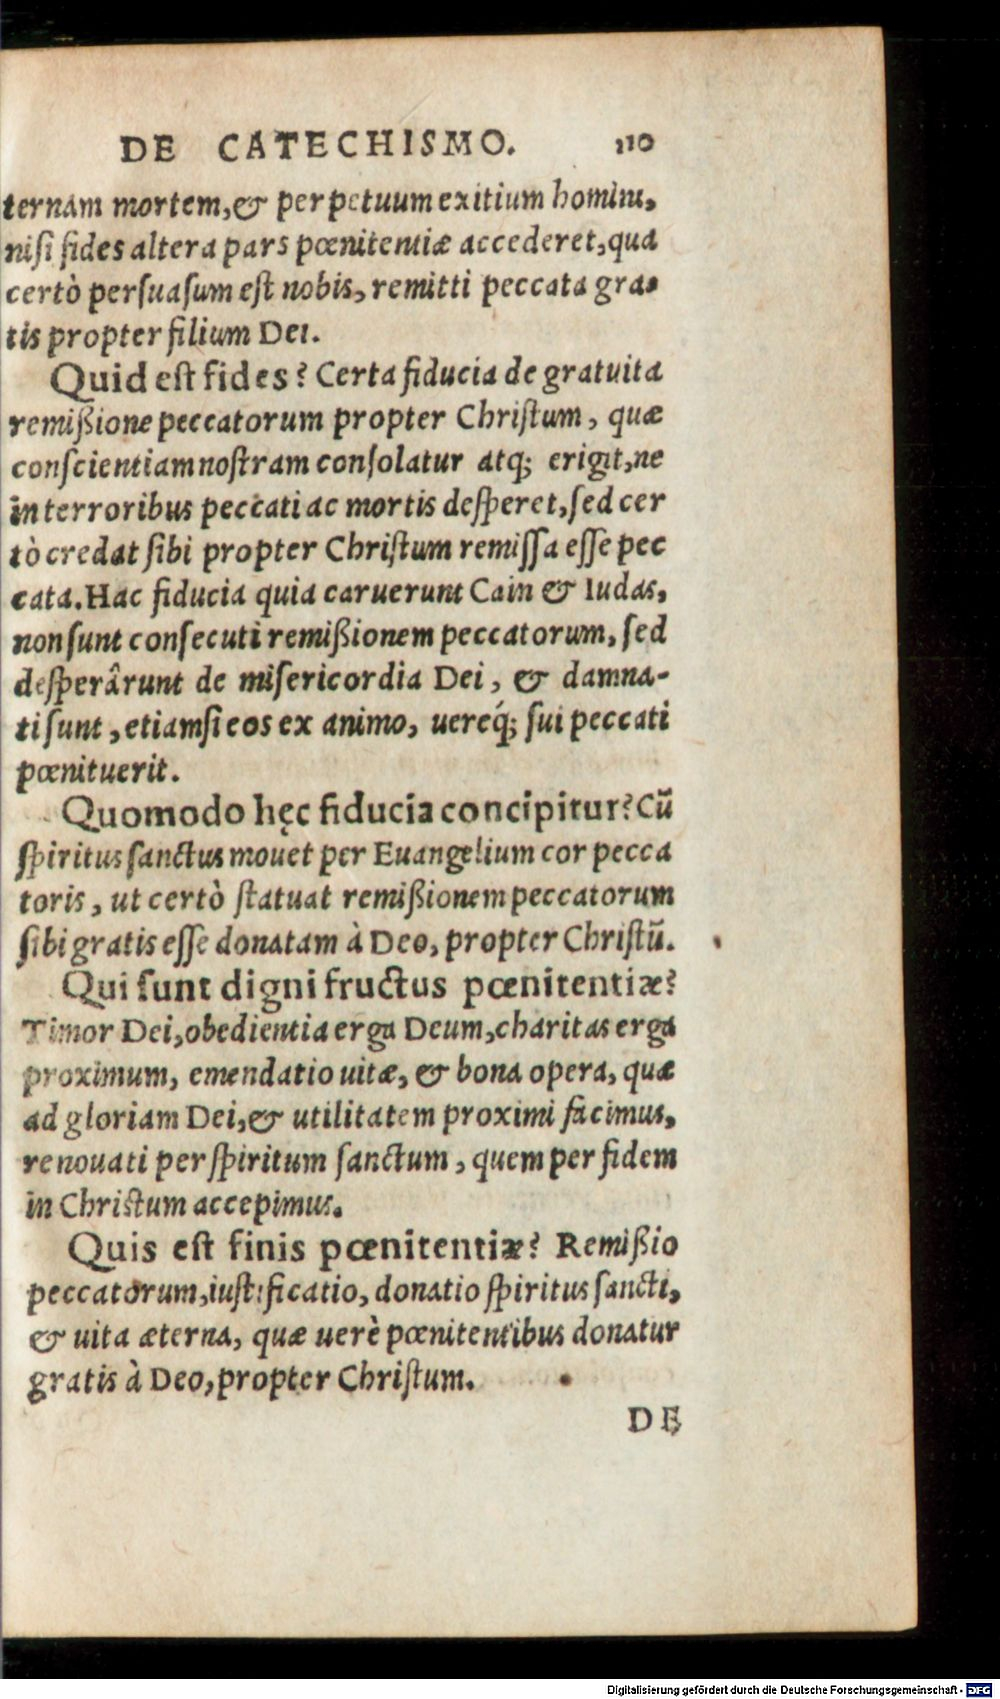 DE CATECHISMO. 110
ternam mortem,& perpetuum exitium homini,
nisi fides altera pars pœnitentiæ accederet,qua
certò persuasum est nobis, remitti peccata gra-
tis propter filium Dei.
Quid est fides? Certa fiducia de gratuita
remißione peccatorum propter Christum, quæ
conscientiam nostram consolatur atq; erigit,ne
in terroribus peccati ac mortis desperet,sed cer
tò credat sibi propter Christum remissa esse pec
cata. Hac fiducia quia caruerunt Cain & Iudas,
non sunt consecuti remißionem peccatorum, sed
desperârunt de misericordia Dei, & damna-
ti sunt, etiamsi eos ex animo, uereq́; sui peccati
pœnituerit.
Quomodo hęc fiducia concipitur? Cũ
spiritus sanctus mouet per Euangelium cor pecca
toris, ut certò statuat remißionem peccatorum
sibi gratis esse donatam à Deo, propter Christũ.
Qui sunt digni fructus pœnitentiæ?
Timor Dei,obedientia erga Deum,charitas erga
proximum, emendatio uitæ, & bona opera, quæ
ad gloriam Dei,& utilitatem proximi facimus,
renouati per spiritum sanctum, quem per fidem
in Christum accepimus.
Quis est finis pœnitentiæ? Remißio
peccatorum,iustificatio, donatio spiritus sancti,
& uita æterna, quæ uerè pœnitentibus donatur
gratis à Deo,propter Christum.
DE
Digitalisierung gefördert durch die Deutsche Forschungsgemeinschaft - DFG